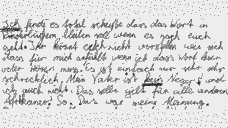 Ich finde es total scheiße dass das Wort in
Kinderbüchern, bleiben soll wenn es nach euch
geht. Ihr könnt euch nicht vorstellen wie sich
das für mich anfühlt wenn ich dass Wort lesen oder
hören muss. Es ist einfach nur sehr sehr
schrecklich. Mein Vater ist kein Neger und
ich auch nicht. Das selbe gilt für alle anderen
Afrikaner. So, das war meine Meinung.